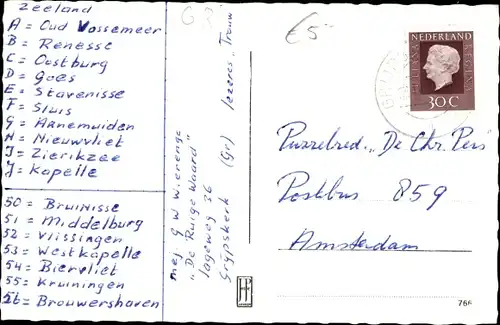 Zeeland
A = Oud Vossemeer
B = Renesse
C = Oostburg
D = Goes
E = Stavenisse
F = Sluis
G = Arnemuiden
H = Nieuwvliet
I = Zierikzee
J = Kapelle
50 = Bruinisse
51 = Middelburg
52 = Vlissingen
53 = Westkapelle
54 = Biervliet
55 = Kruiningen
56 = Brouwershaven
mej G W Wierenga
"De Ruige Waard"
lageweg 36
Grijpskerk (Gr) lezeres "Trouw"
€5
NEDERLAND
JULIANA REGINA
30 C
Puzzelred. "De Chr. Pers"
Postbus 859
Amsterdam
H
766